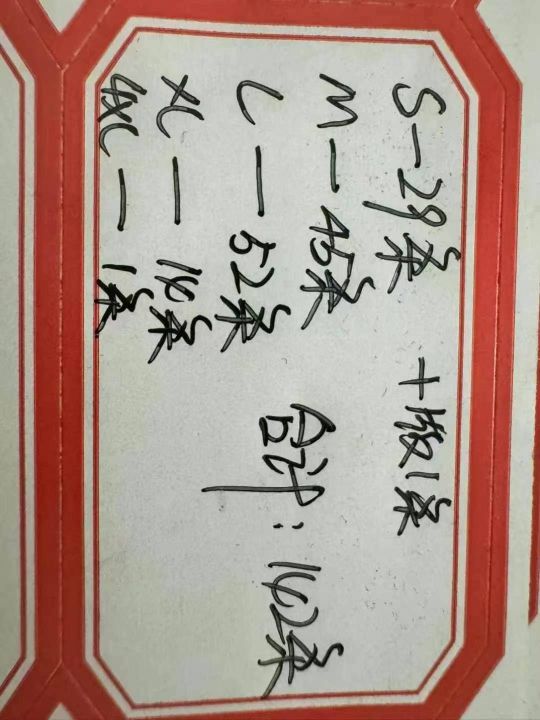 S—29条 +版1条
M—45条
L—52条
XL—14条
4XL—1条
合计:142条